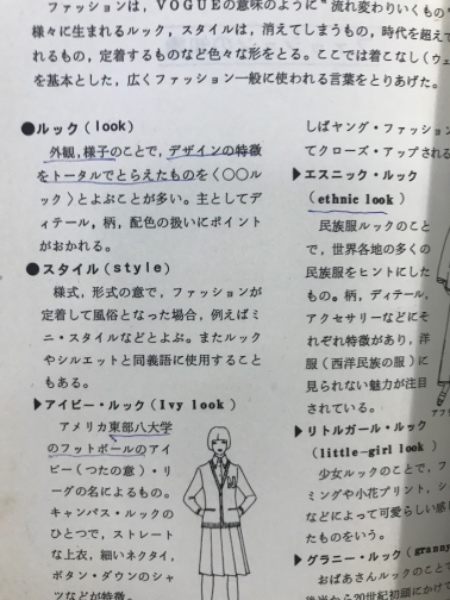 ファッションは，VOGUEの意味のように“流れ変わりいくもの”
様々に生まれるルック，スタイルは，消えてしまうもの，時代を超えて
れるもの，定着するものなど色々な形をとる。ここでは着こなし（ウェ
を基本とした，広くファッション一般に使われる言葉をとりあげた。
●ルック（look）
外観，様子のことで，デザインの特徴
をトータルでとらえたものを〈○○ル
ック〉とよぶことが多い。主としてデ
ィテール，柄，配色の扱いにポイント
がおかれる。
●スタイル（style）
様式，形式の意で，ファッションが
定着して風俗となった場合，例えばミ
ニ・スタイルなどとよぶ。またルック
やシルエットと同義語に使用すること
もある。
▶アイビー・ルック（Ivy look）
アメリカ東部八大学
のフットボールのアイ
ビー（つたの意）・リ
ーグの名によるもの。
キャンパス・ルックの
ひとつで，ストレート
な上衣，細いネクタイ，
ボタン・ダウンのシャ
ツなどが特徴。
しばヤング・ファッション
てクローズ・アップされる
▶エスニック・ルック
（ethnic look）
民族服ルックのこと
で，世界各地の多くの
民族服をヒントにした
もの。柄，ディテール，
アクセサリーなどにそ
れぞれ特徴があり，洋
服（西洋民族の服）に
見られない魅力が注目
されている。
アフ
▶リトルガール・ルック
（little-girl look）
少女ルックのことで，フ
ミングや小花プリント，シ
などによって可愛らしい感
たものをいう。
▶グラニー・ルック（granny
おばあさんルックのことで
後半から20世紀初頭にかけて